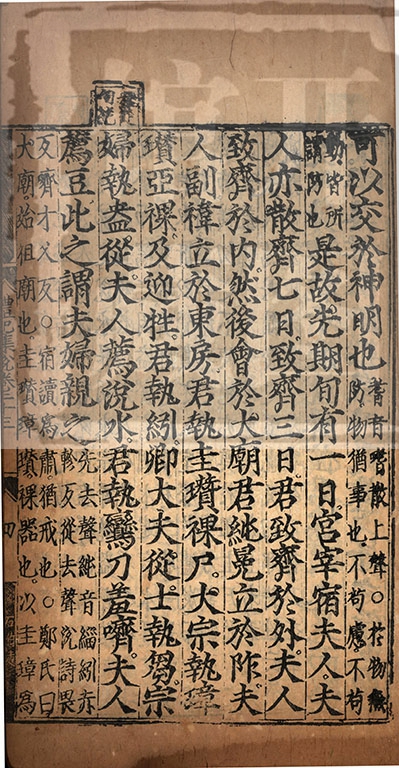 可以交於神明也耆音嗜散上聲○於物無
防物猶事也不苟慮不苟
動皆所
謂防也是故先期旬有一日宮宰宿夫人夫
人亦散齊七日致齊三日君致齊於外夫人
致齊於內然後會於大廟君純冕立於阼夫
人副褘立於東房君執圭瓚祼尸大宗執璋
瓚亞祼及迎牲君執紖卿大夫從士執芻宗
婦執盎從夫人薦涗水君執鸞刀羞嚌夫人
薦豆此之謂夫婦親之先去聲純音緇紖赤
軫反從去聲涗詩畏
反齊才乂反○宿讀為肅猶戒也○鄭氏曰
大廟始祖廟也圭瓚璋瓚祼器也以圭璋為
四